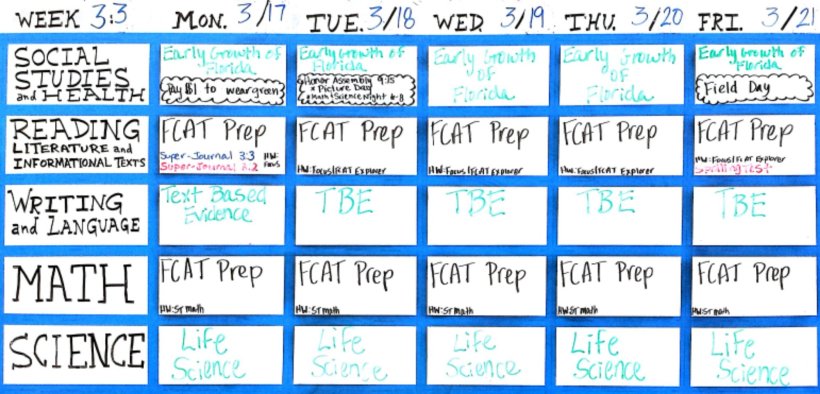 WEEK 3:3 MON. 3/17 TUE. 3/18 WED. 3/19 THU. 3/20 FRI. 3/21
SOCIAL
STUDIES
and HEALTH
Early Growth of
Florida
Pay $1 to wear green
Early Growth of
Florida
Honor Assembly 9:15
* Picture Day
* Math + Science Night 6-8
Early Growth
of
Florida
Early Growth
of
Florida
Early Growth of
Florida
Field Day
READING
LITERATURE and
INFORMATIONAL TEXTS
FCAT Prep
Super-Journal 3.3
Super-Journal 3.2
HW:
Focus
FCAT Prep
HW: Focus/FCAT Explorer
FCAT Prep
HW: Focus/FCAT Explorer
FCAT Prep
HW: Focus/FCAT Explorer
FCAT Prep
HW: Focus/FCAT Explorer
Spelling Test
WRITING
and LANGUAGE
Text Based
Evidence
TBE
TBE
TBE
TBE
MATH
FCAT Prep
HW: ST math
FCAT Prep
HW: ST math
FCAT Prep
HW: ST math
FCAT Prep
HW: ST math
FCAT Prep
HW: ST math
SCIENCE
Life
Science
Life
Science
Life
Science
Life
Science
Life
Science